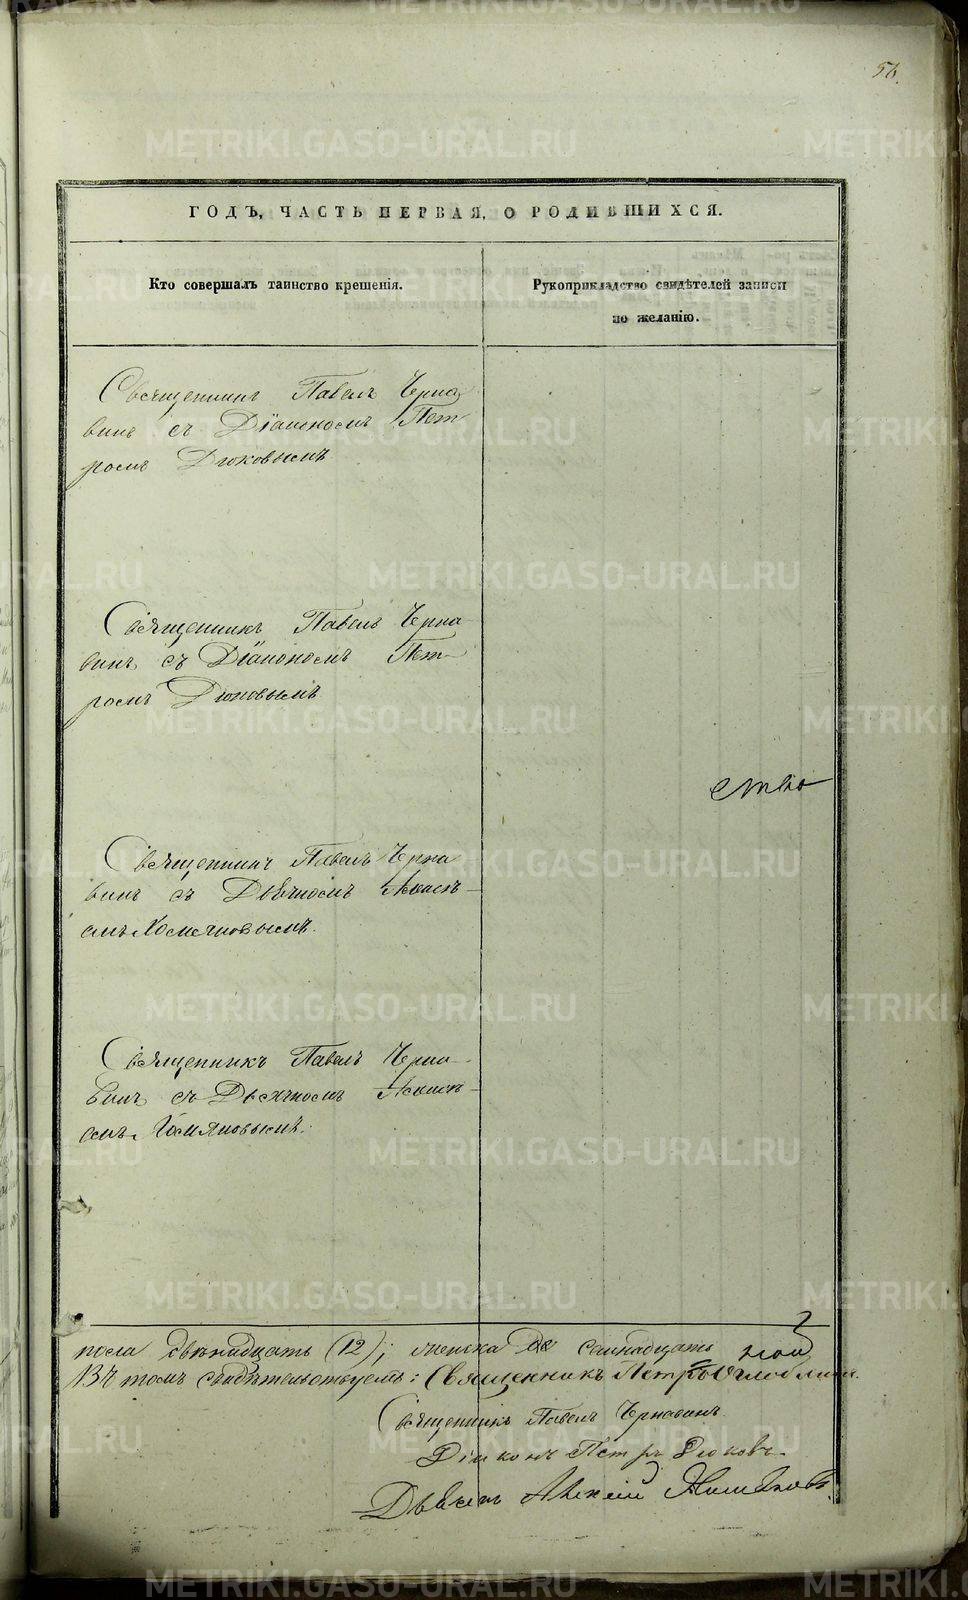 56.
ГОДЪ, ЧАСТЬ ПЕРВАЯ, О РОДИВШИХСЯ.
Кто совершалъ таинство крещенія.
Рукоприкладство свидѣтелей записи
по желанію.
Священникъ Павелъ Черна
винъ съ Діакономъ Пет
ромъ Дюковымъ
Священникъ Павелъ Черна
винъ съ Діакономъ Пет
ромъ Дюковымъ
ство
Священникъ Павелъ Черна
винъ съ Дьячкомъ Алексѣ
емъ Хомяковымъ.
Священникъ Павелъ Черна
винъ съ Дьячкомъ Алексѣ
емъ Хомяковымъ.
пола двѣнадцать (12); женска семнадцать
Въ томъ свидѣтельствуемъ: Священникъ Петръ
Священникъ Павелъ Чернавинъ
Діаконъ Петръ Дюковъ
Дьячекъ Алексій Хомяковъ
METRIKI.GASO-URAL.RU